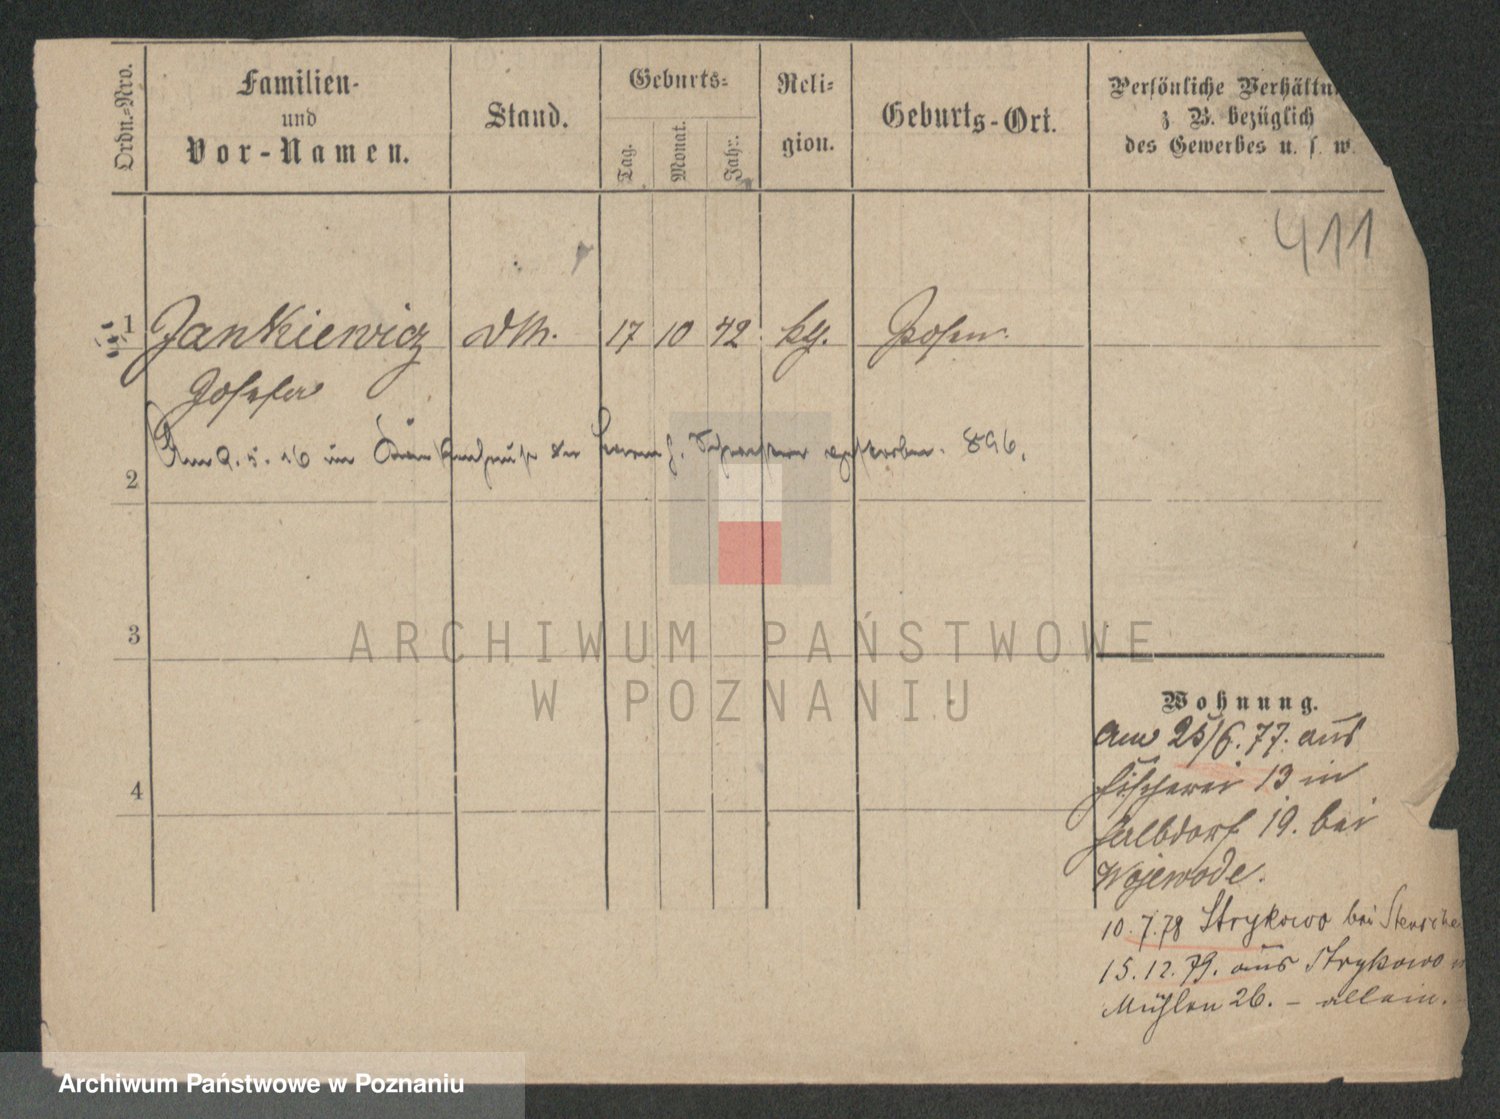 Ordn.-Nro.
Familien-
und
Vor-Namen.
Stand.
Geburts-
Tag.
Monat.
Jahr.
Reli-
gion.
Geburts-Ort.
Persönliche Verhältn
z. B. bezüglich
des Gewerbes u. s. w.
411
1 Jankiewicz 17 10 42 kth. Posen.
Josefa
Am 9.5.16 im gestorben. 896.
2
3
4
ARCHIWUM PAŃSTWOWE
W POZNANIU
Wohnung.
Am 25/6.77. aus
Fischerei 13 in
Halbdorf 19. bei
Wojewode.
10.7.78 Strykowo bei Stensche
15.12.79. aus Strykowo
Mühlen 26. – allein.
Archiwum Państwowe w Poznaniu